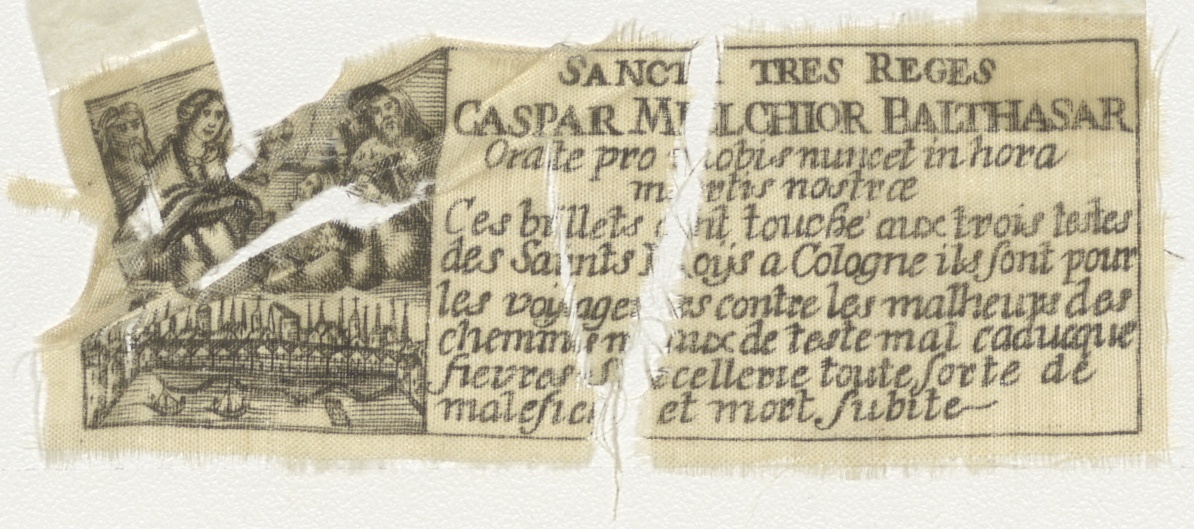 SANCTI TRES REGES
CASPAR MELCHIOR BALTHASAR
Orate pro nobis nunc et in hora
mortis nostræ
Ces billets ont touché aux trois testes
des Saints Roys a Cologne ils ſont pour
les voyageurs contre les malheurs des
chemins maux de teste mal caducque
fievres ſorcellerie toute ſorte de
malefice et mort ſubite